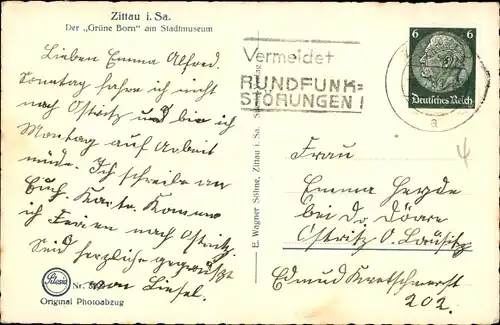 Zittau i. Sa.
Der „Grüne Born" am Stadtmuseum
Lieben Emma Alfred.
Sonntag fahre ich nicht
nach Ostritz und bin ich
Montag auf Arbeit
müde. Ich schreibe an
Euch. Karte. Komme
ich Ferien nach Ostritz.
Seid herzlichst gegrüßt
von Liesel.
Silesia
Nr.
Original Photoabzug
E. Wagner Söhne, Zittau i. Sa.
Vermeidet
RUNDFUNK=
STÖRUNGEN!
6 6
Deutsches Reich
a
Frau
Emma Heyde
bei Dr. Dörre
Ostritz O. Lausitz
Edmund Kretschmerstr
202.